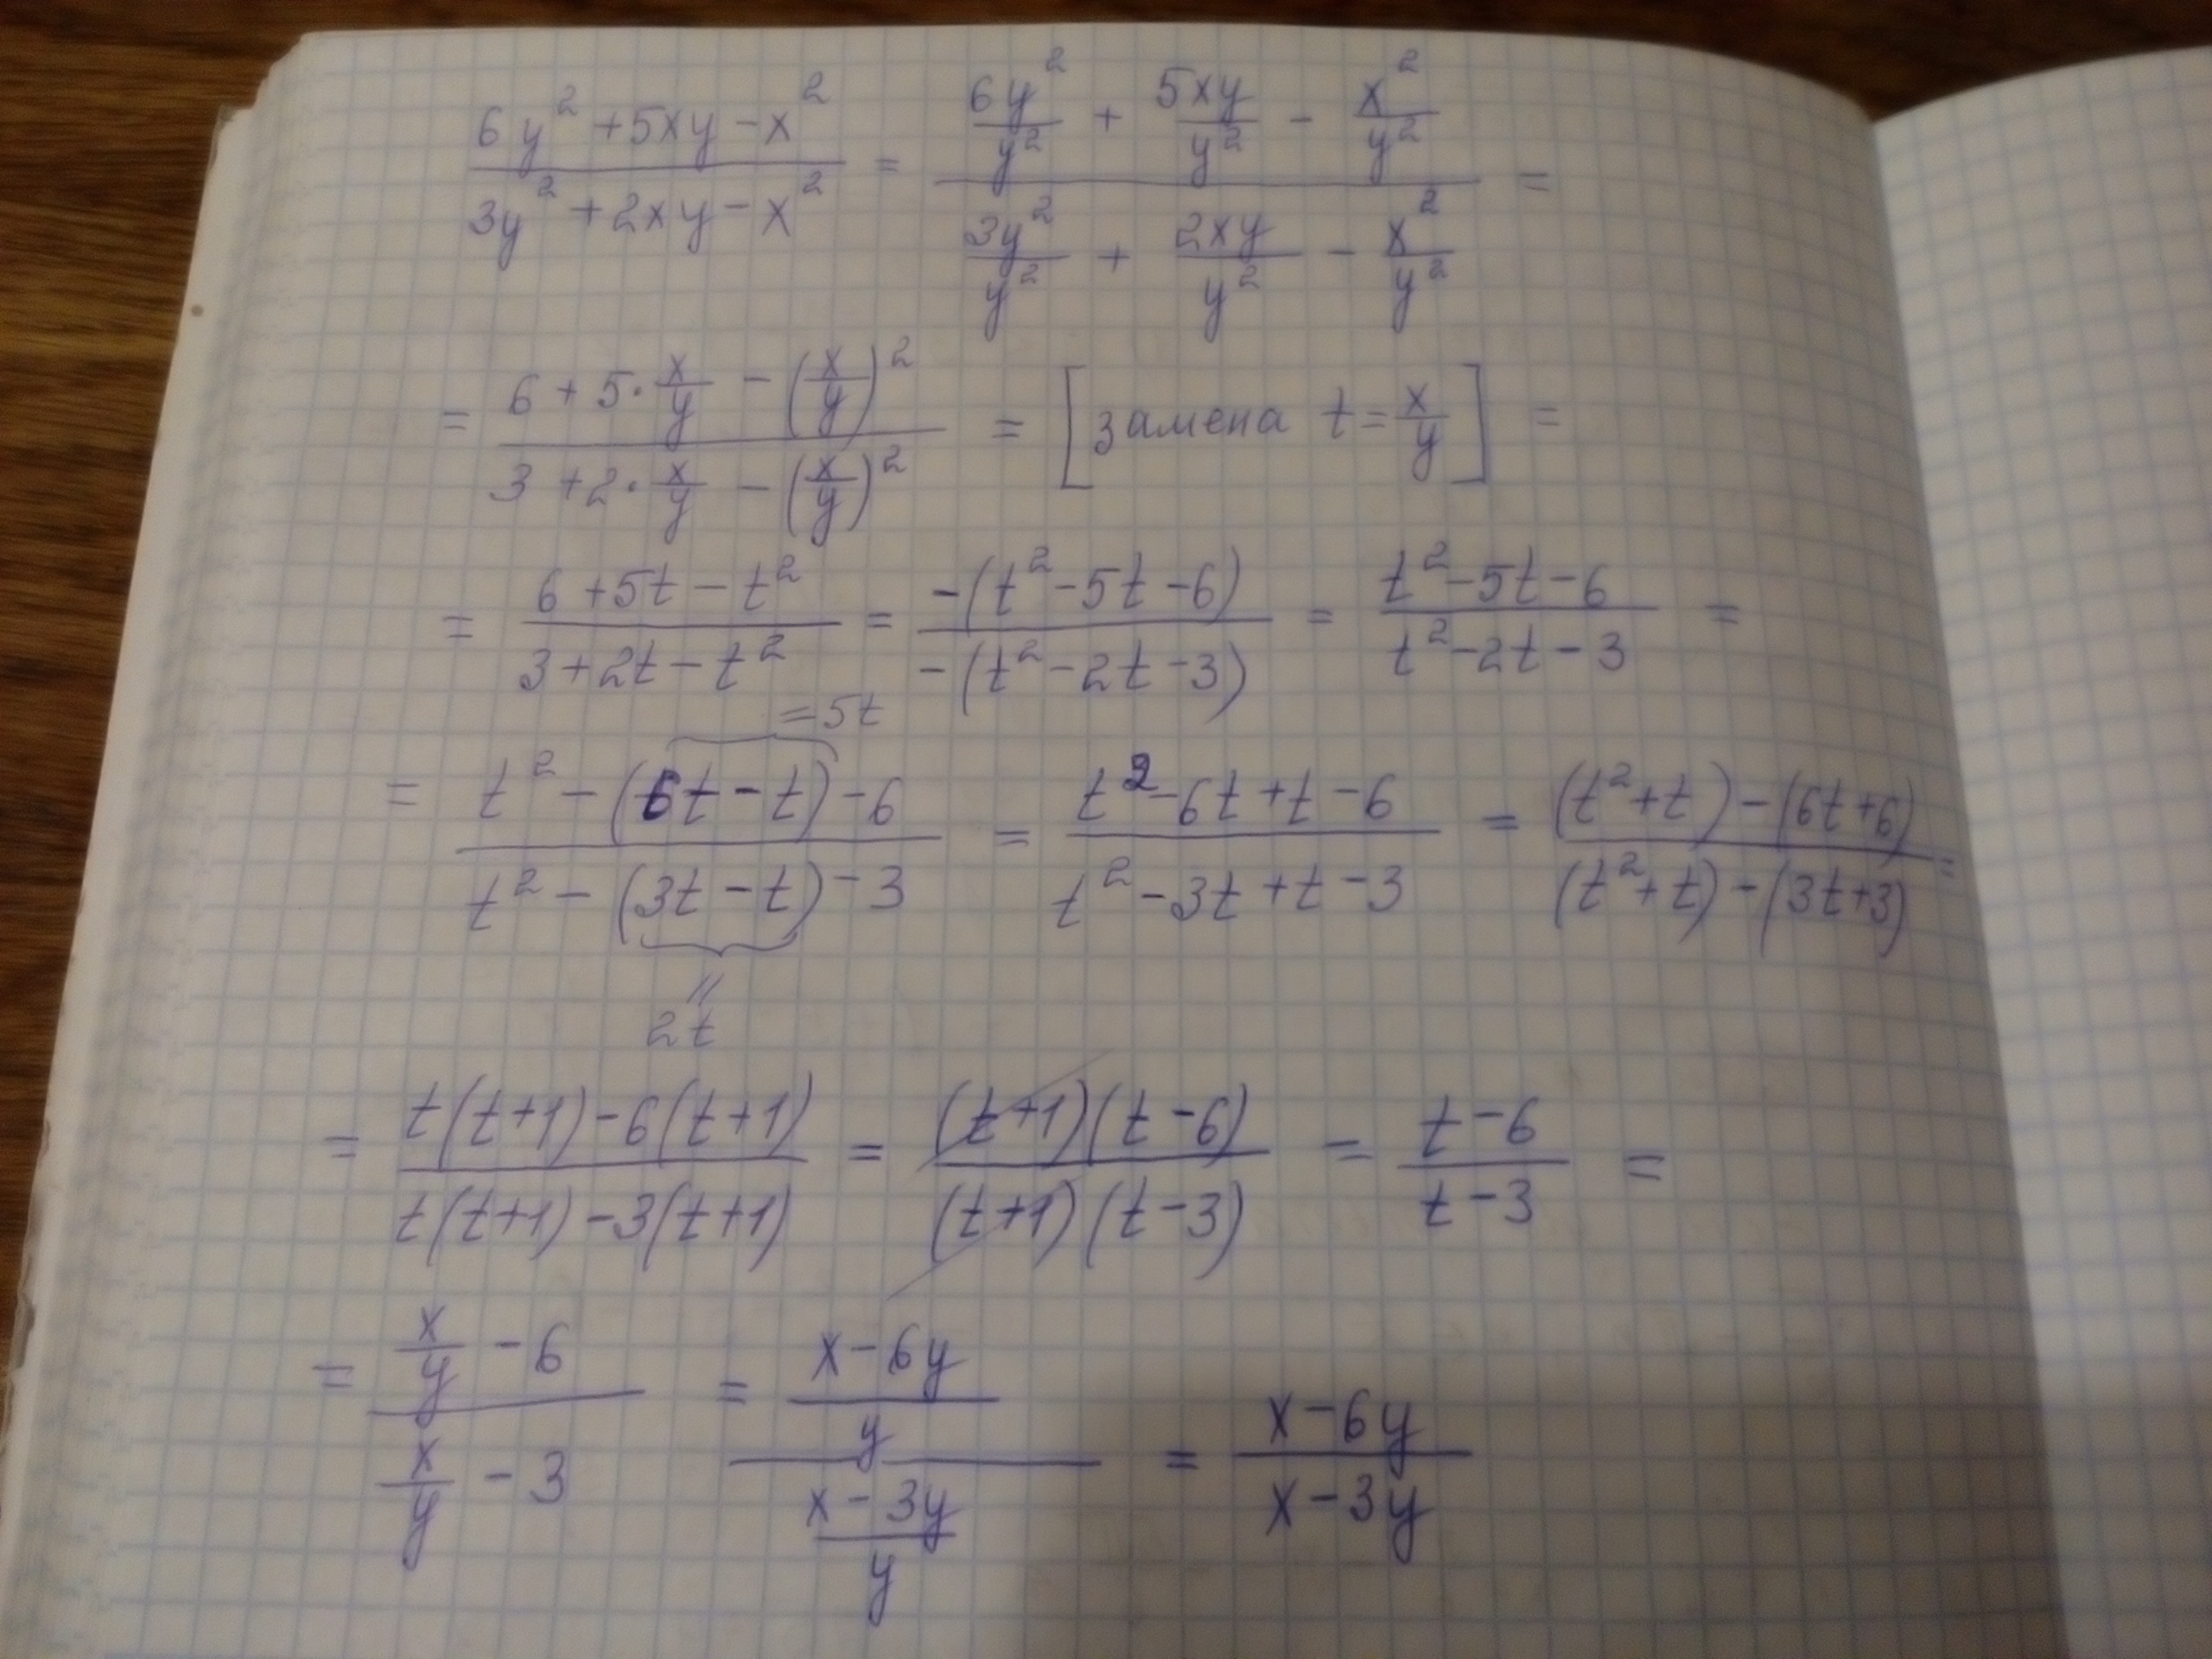 (6y² + 5xy - x²)/(3y² + 2xy - x²) = (6y²/y² + 5xy/y² - x²/y²)/(3y²/y² + 2xy/y² - x²/y²) =
= (6 + 5·x/y - (x/y)²)/(3 + 2·x/y - (x/y)²) = [замена t = x/y] =
= (6 + 5t - t²)/(3 + 2t - t²) = -(t² - 5t - 6)/-(t² - 2t - 3) = (t² - 5t - 6)/(t² - 2t - 3) =
=5t
= (t² - (6t - t) - 6)/(t² - (3t - t) - 3) = (t² - 6t + t - 6)/(t² - 3t + t - 3) = ((t² + t) - (6t + 6))/((t² + t) - (3t + 3)) =
=
2t
= (t(t+1) - 6(t+1))/(t(t+1) - 3(t+1)) = ((t+1)(t-6))/((t+1)(t-3)) = (t-6)/(t-3) =
= (x/y - 6)/(x/y - 3) = ((x-6y)/y)/((x-3y)/y) = (x-6y)/(x-3y)